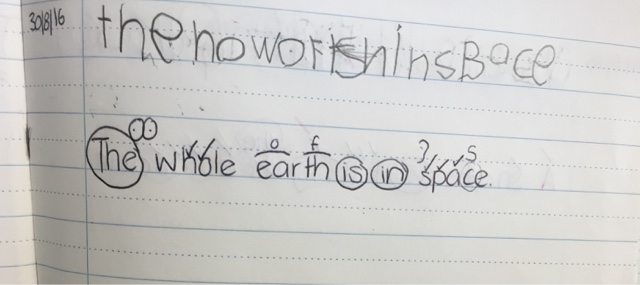 30/8/16
thehoworthinsBace
The whole earth is in space.